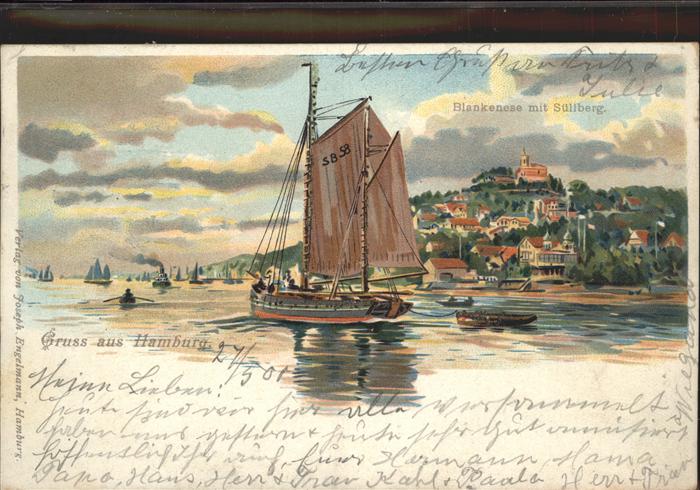 Besten Gruß von Fritz &
Julie
Blankenese mit Süllberg.
S.B 58
Gruss aus Hamburg.
27/5 01
Meine Lieben!
heute sind wir hier alle versammelt
haben uns gestern & heute sehr gut amüsiert
hoffentlich auch Euer Hermann, Mama
Papa, Hans, Herr & Frau Kahl & Paula Herr & Frau
Verlag von Joseph Engelmann, Hamburg.